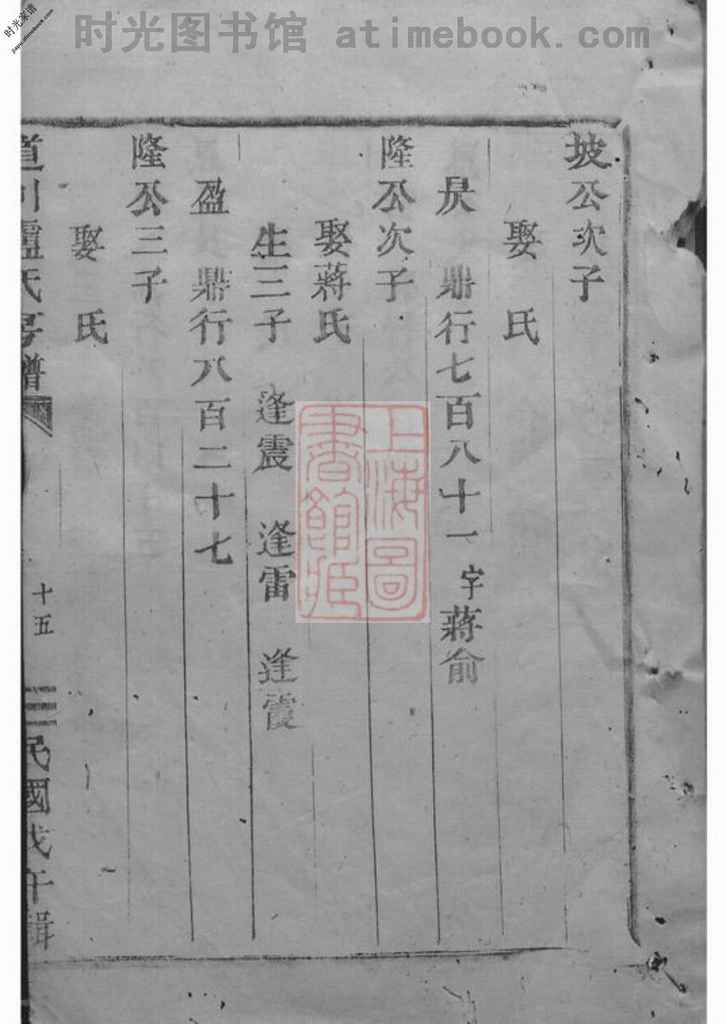 时光图书馆 atimebook.com
时光家谱
坡公次子
娶 氏
鼎行七百八十一 字蔣俞
隆公次子
娶蔣氏
生三子 逢震 逢雷 逢霞
盈 鼎行八百二十七
隆公三子
娶 氏
道川盧氏房譜 十五 民國戊午輯
上海圖書館藏